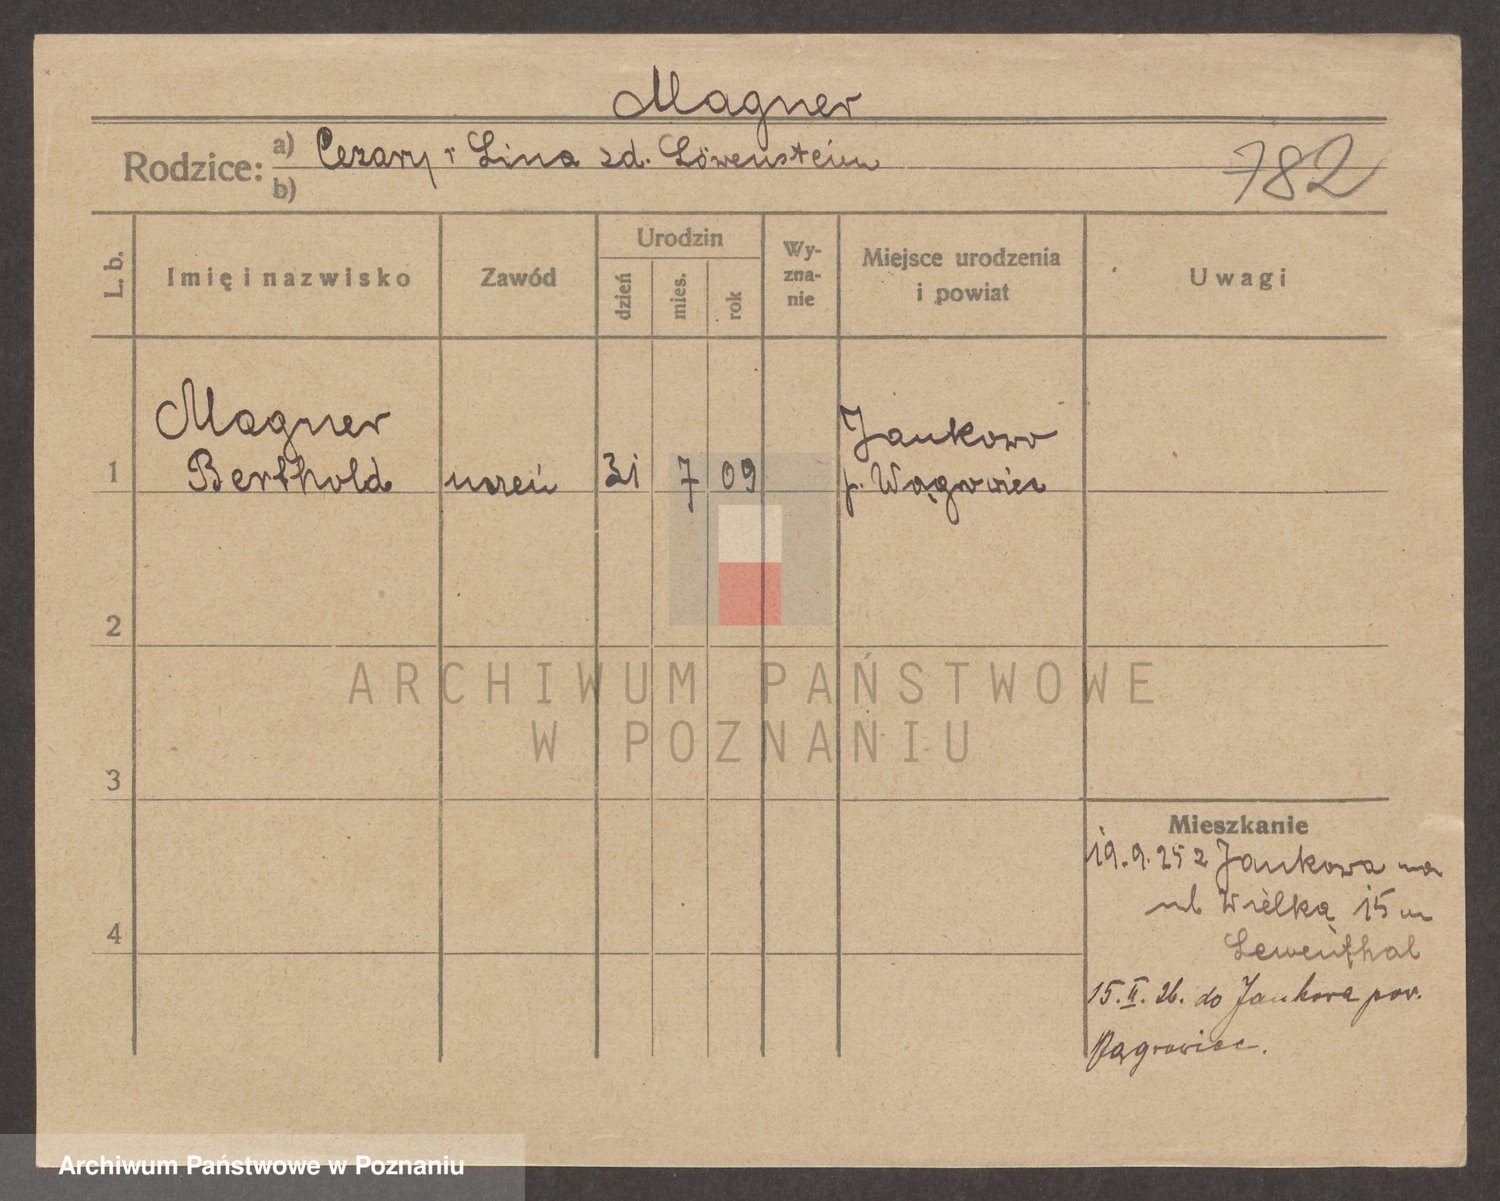 Magner
Rodzice: a) Cezary i Lina zd. Löwenstein
b)
782
L. b.
Imię i nazwisko
Zawód
Urodzin
dzień
mies.
rok
Wy-
zna-
nie
Miejsce urodzenia
i powiat
Uwagi
Magner
1 Berthold uczeń 31 7 09
Jankowo
p. Wągrowiec
2
3
4
ARCHIWUM PAŃSTWOWE
W POZNANIU
Mieszkanie
19.9.25 z Jankowa na
ul Wielką 15 m
Lewenthal
15.II.26. do Jankowa pow.
Wągrowiec.
Archiwum Państwowe w Poznaniu